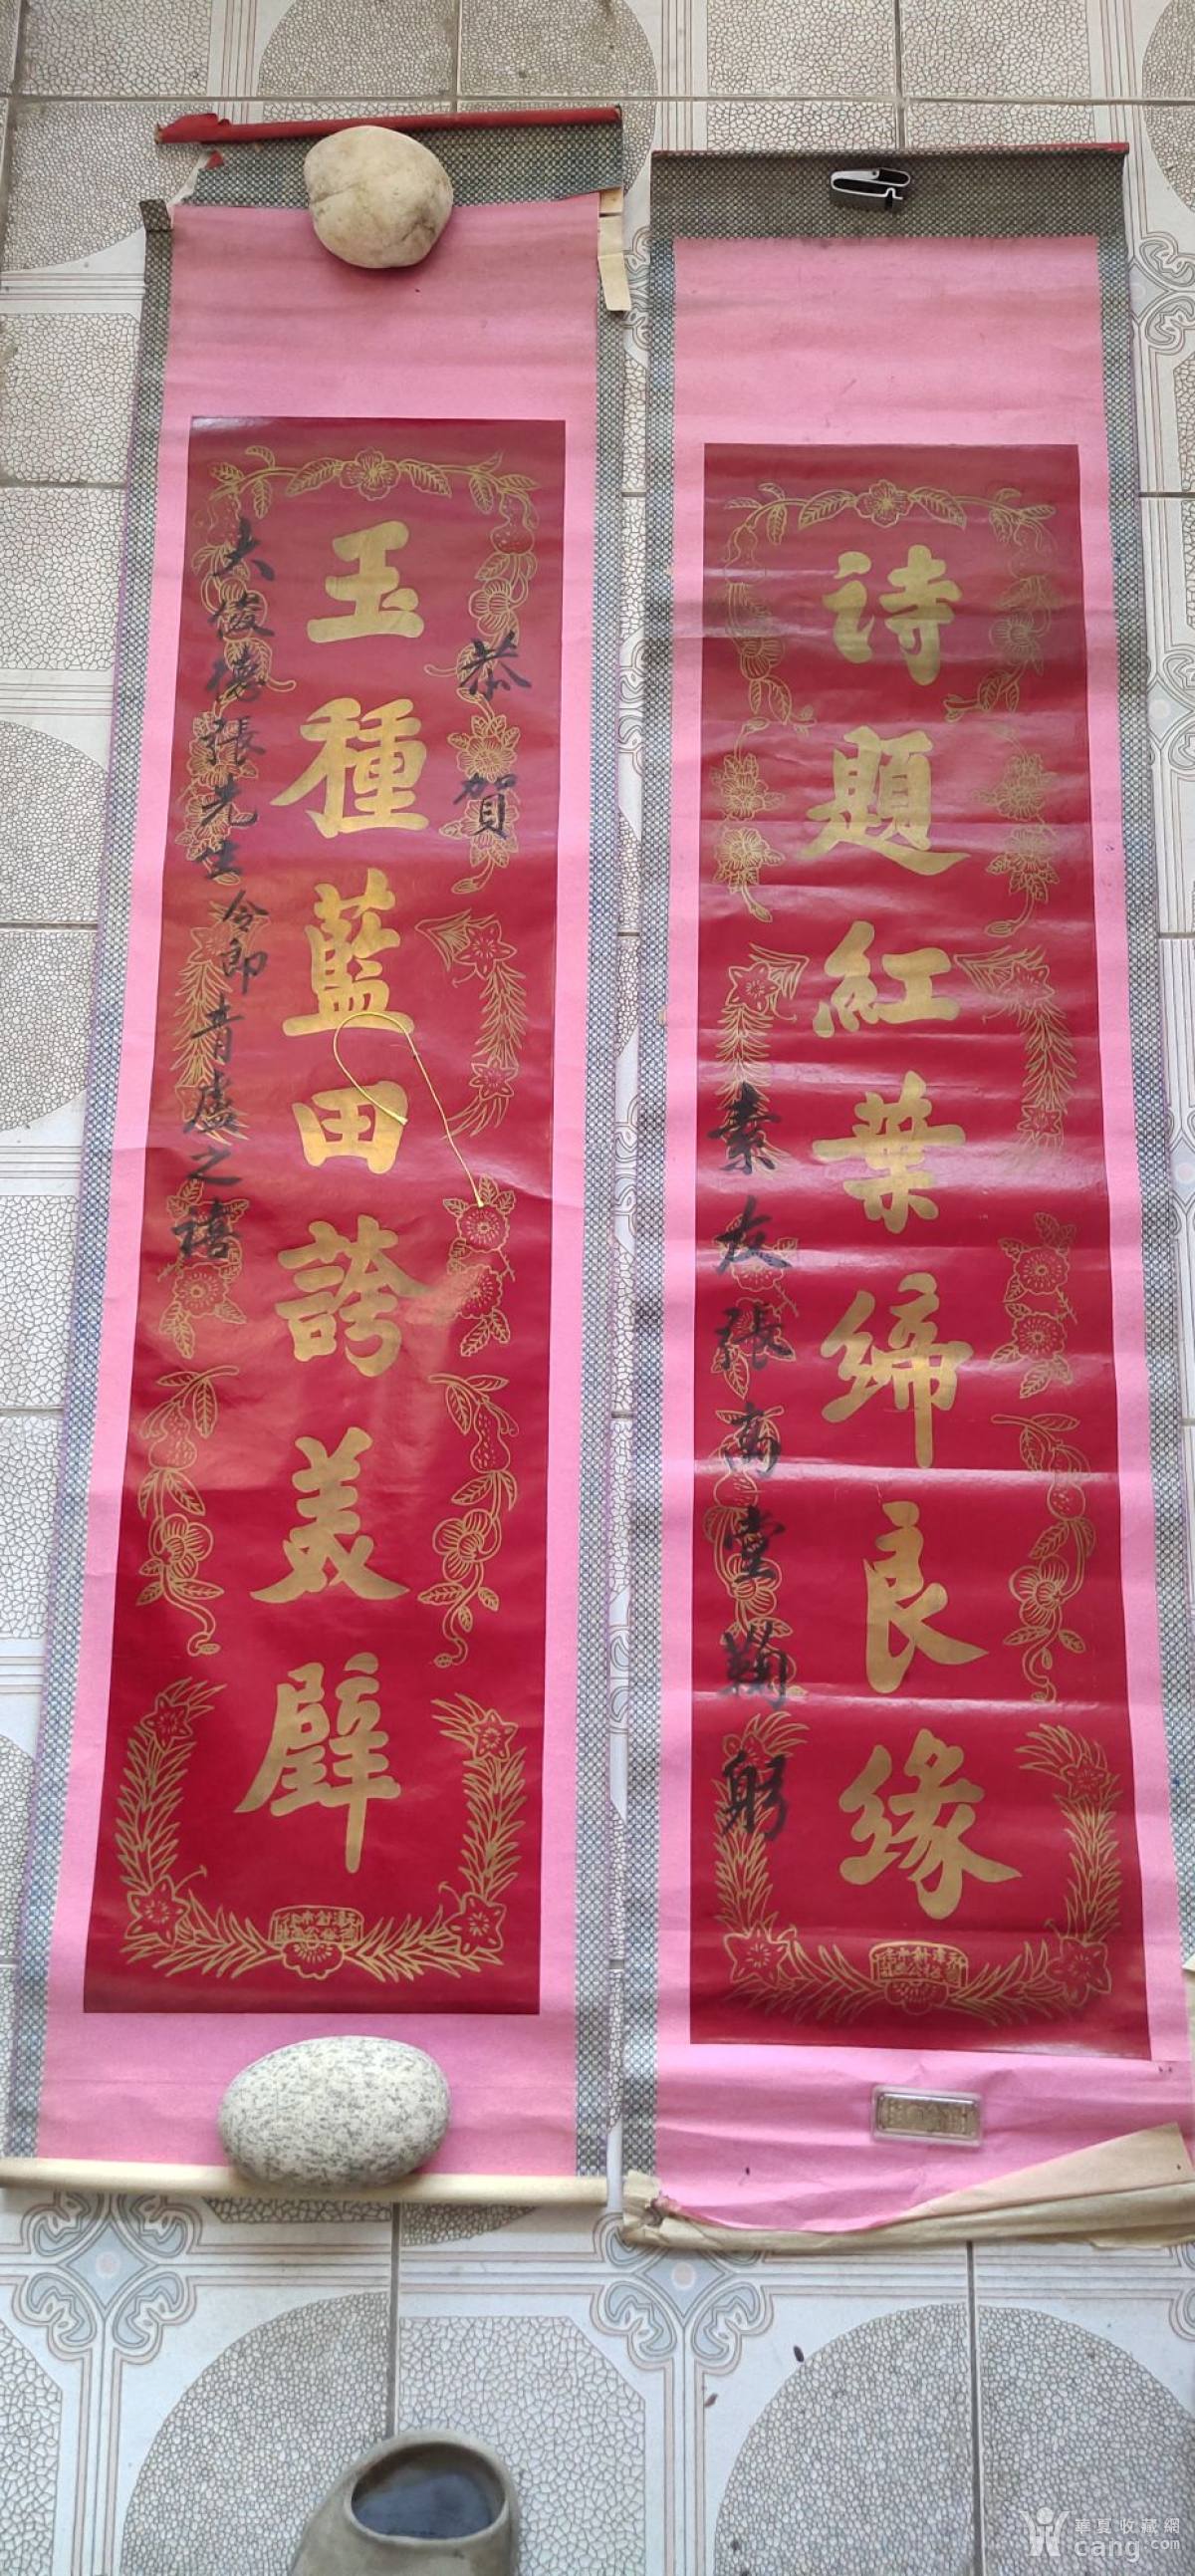 恭賀
玉種藍田誇美辟
大俊德張先生令郎青廬之禧
诗題紅葉缔良缘
素友張高堂鞠躬
華夏收藏網
cang.com